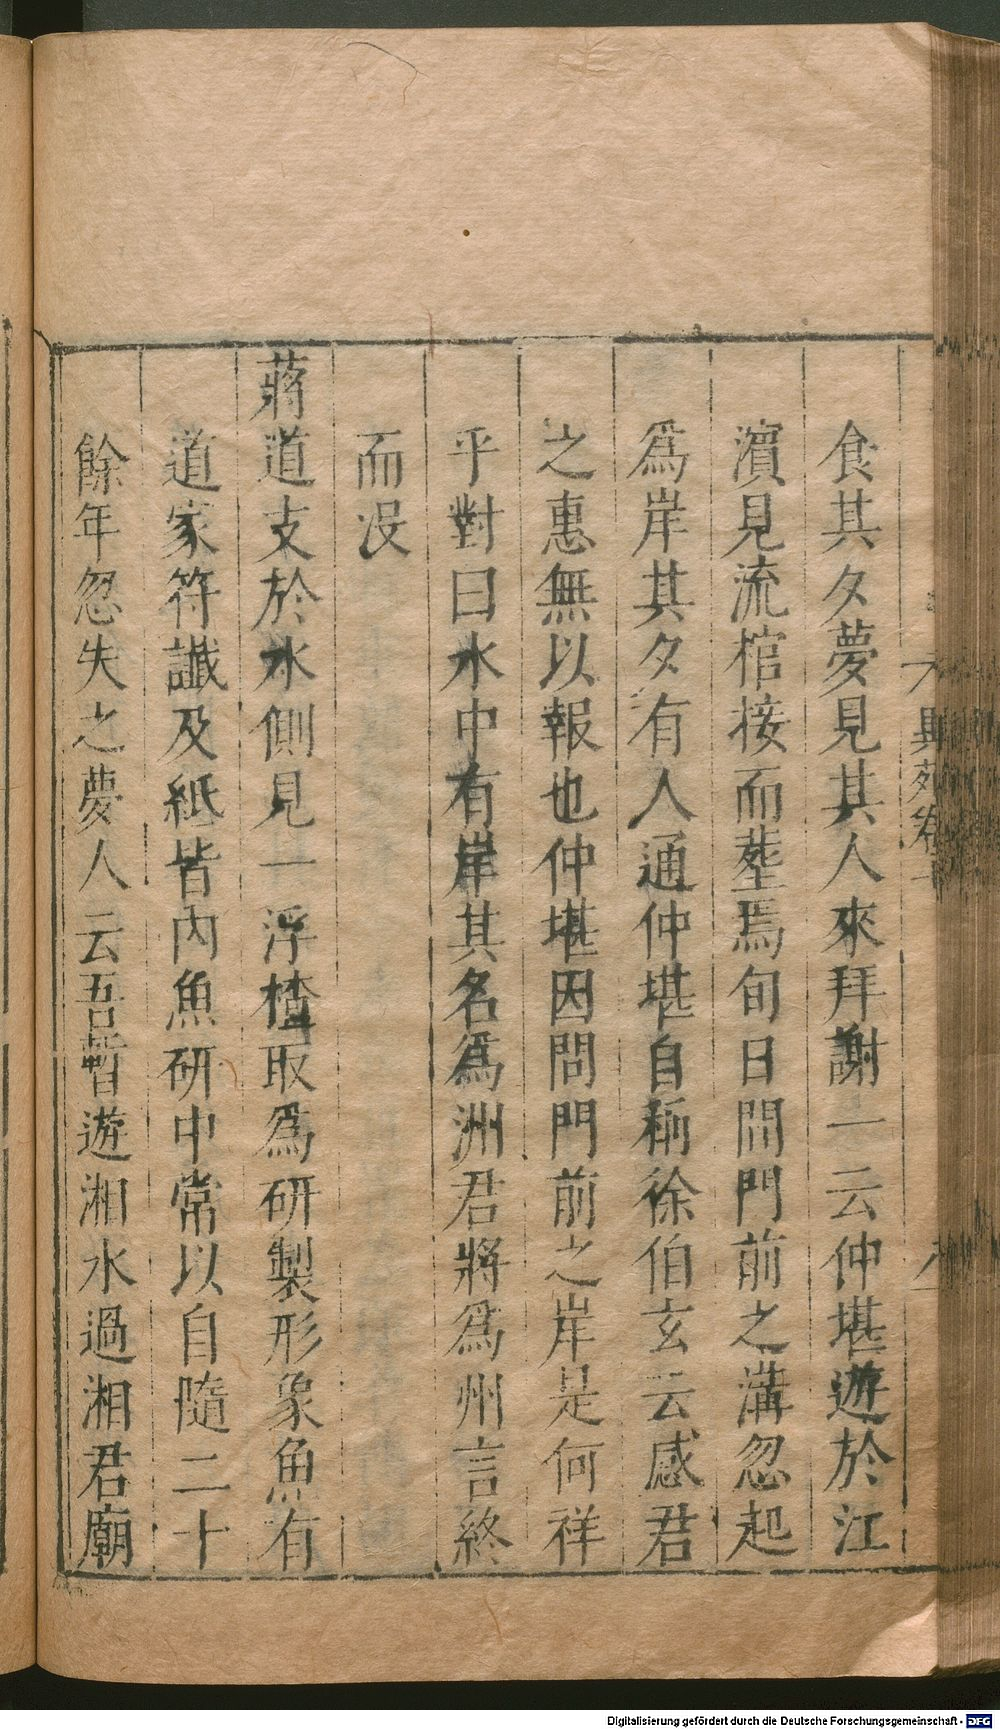 食其夕夢見其人來拜謝一云仲堪遊於江
濵見流棺接而塟焉旬日間門前之溝忽起
爲岸其夕有人通仲堪自稱徐伯玄云感君
之惠無以報也仲堪因問門前之岸是何祥
乎對曰水中有岸其名爲洲君將爲州言終
而没
蔣道支於水側見一浮楂取爲研製形象魚有
道家符讖及紙皆內魚研中常以自隨二十
餘年忽失之夢人云吾暫遊湘水過湘君廟
Digitalisierung gefördert durch die Deutsche Forschungsgemeinschaft - DFG